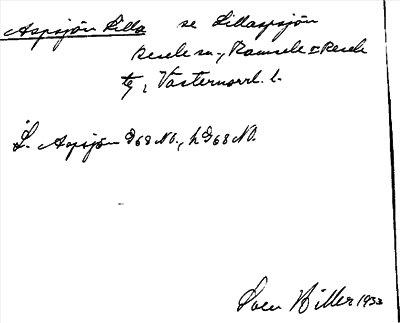 Aspsjön Lilla se Lillaspsjön
Resele sn., Ramsele o Resele
tg, Västernorrl. l.
L. Aspsjön G68 NO., h G68 NO.
Sven Hiller 1933